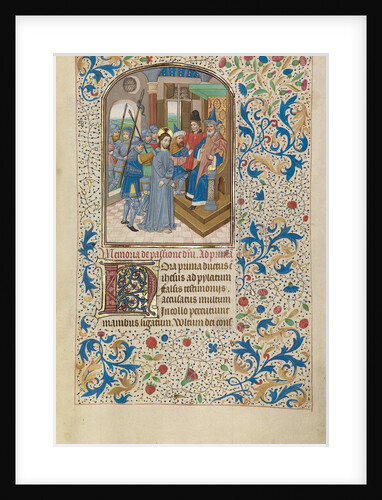 Memoria de passione dni. Ad primā
Hora prima ductus ē
ihesus ad pylatum
Falsis testimoniis
accusatus multum
In collo percutiunt
manibus ligatum. Vultum dei conſ